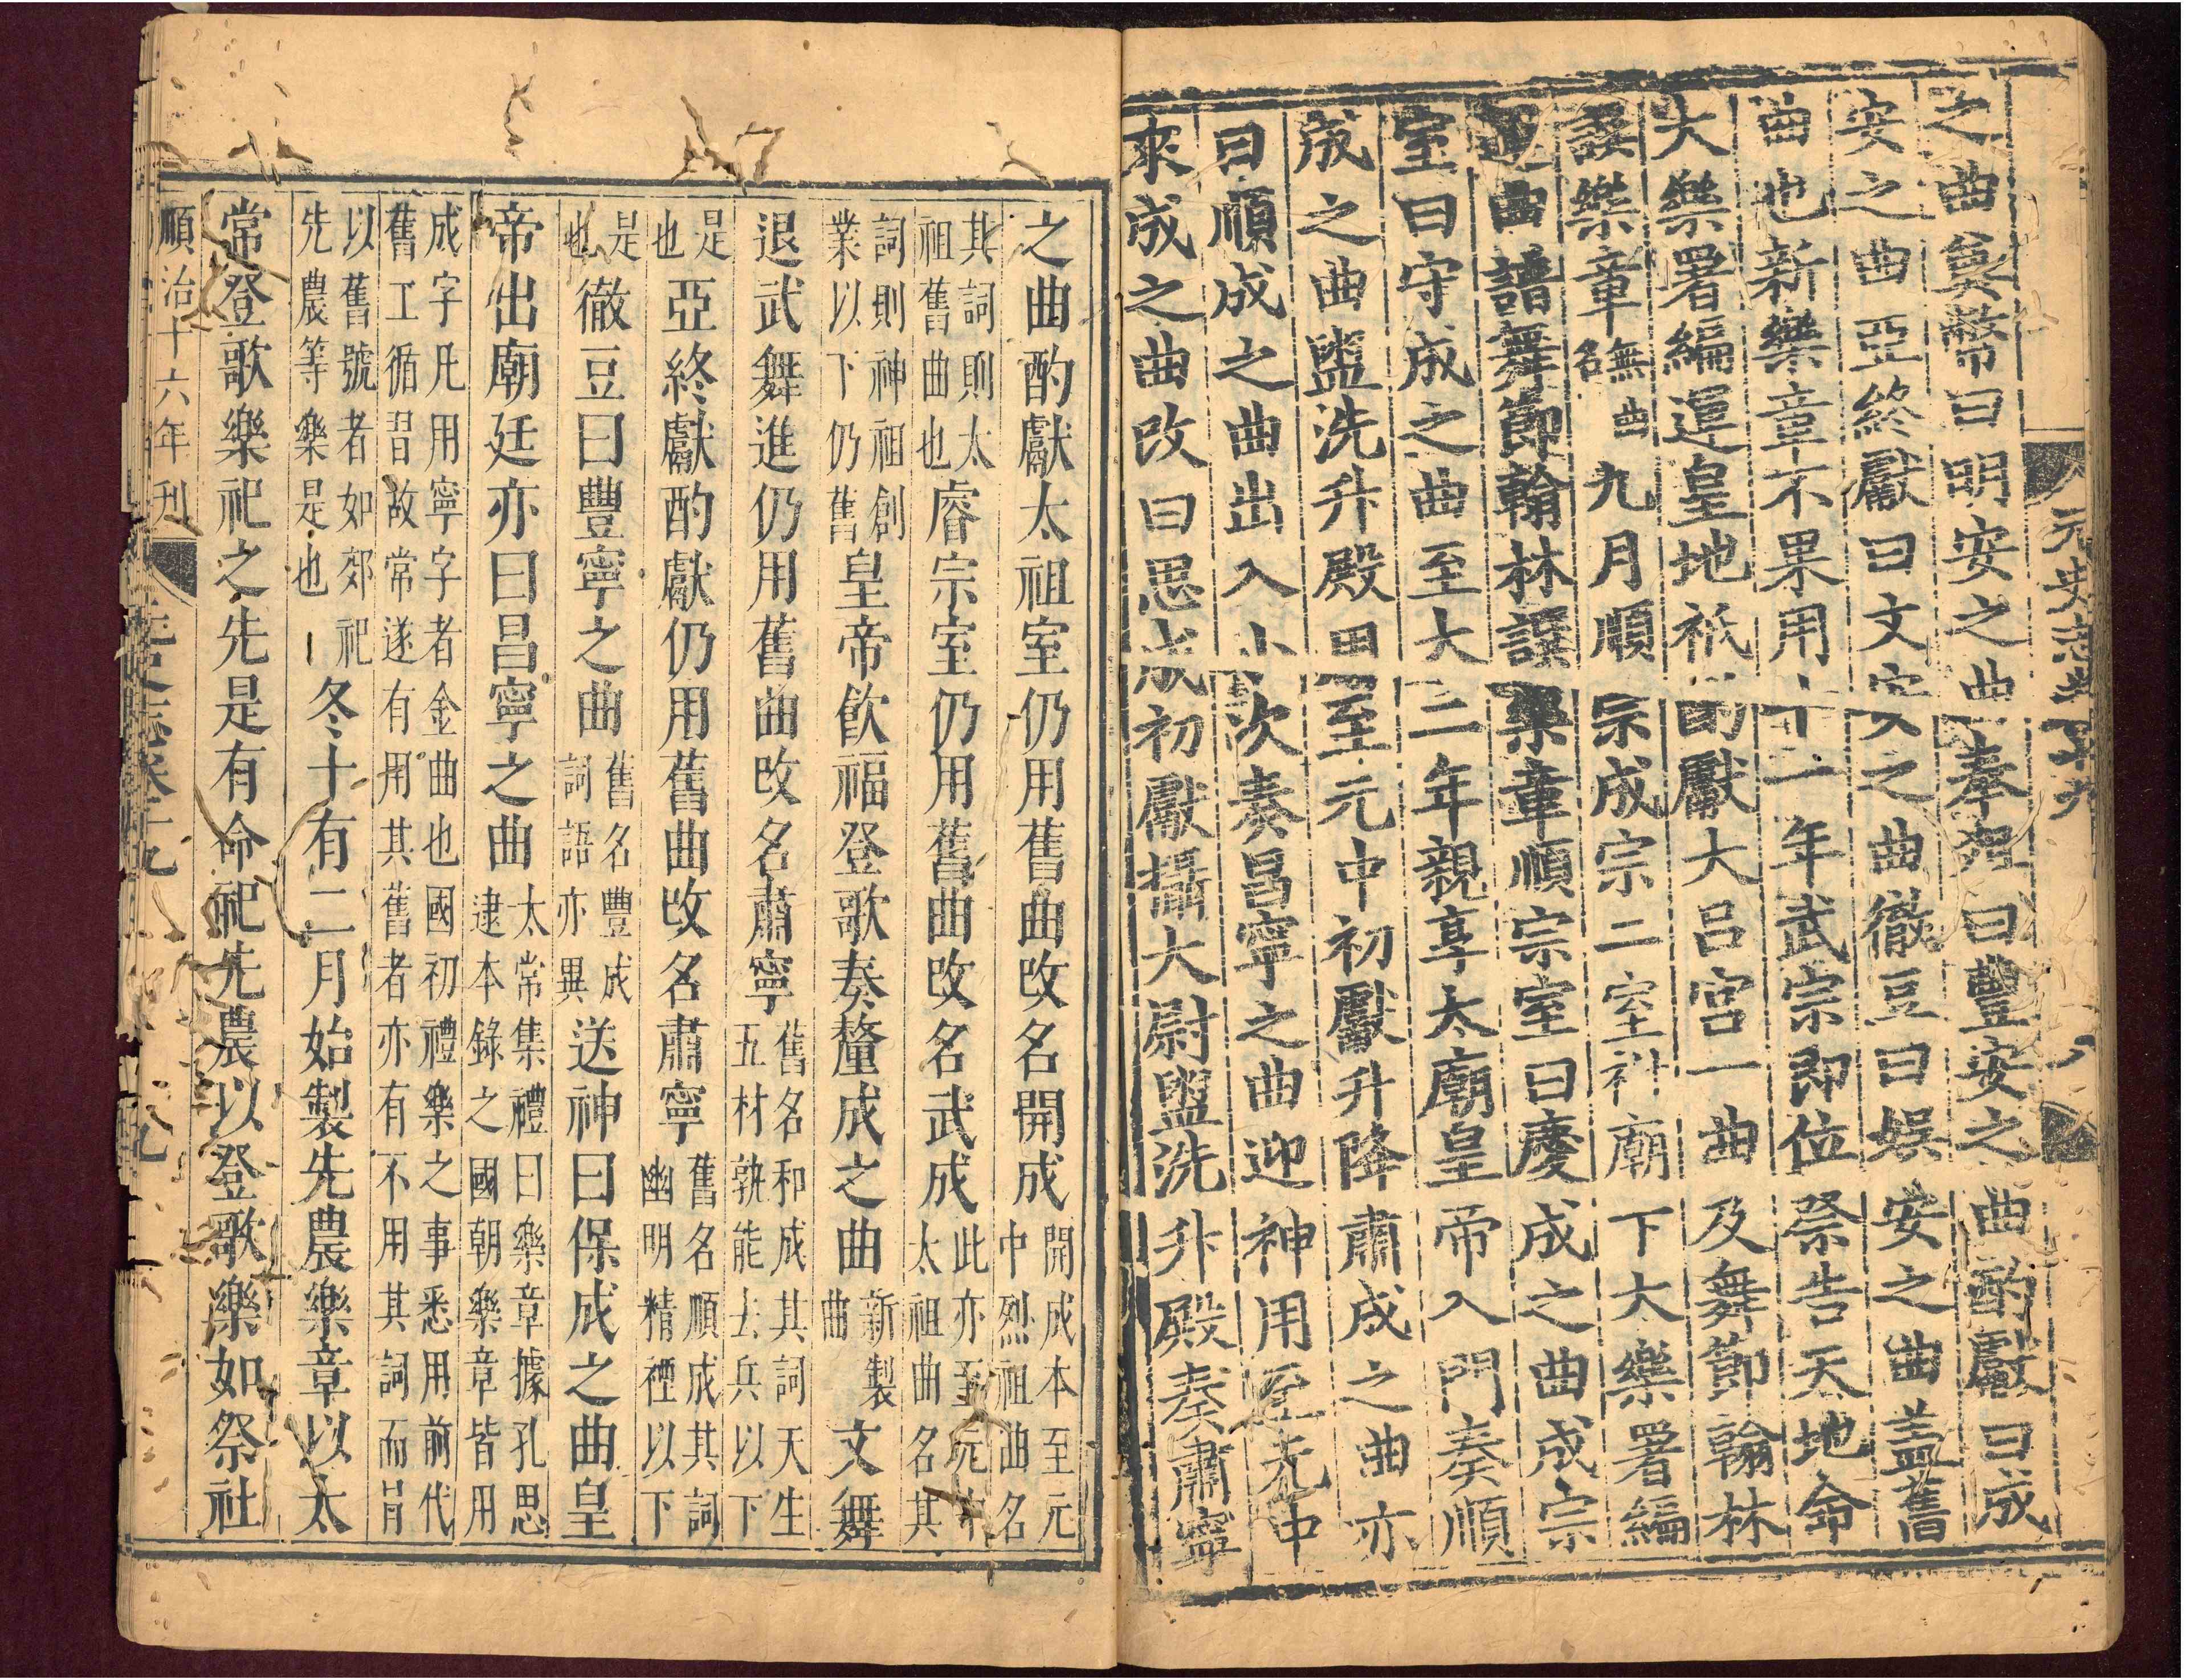 元史志卷十九 八
之曲奠幣曰明安之曲奉俎曰豐安之曲酌獻曰成
安之曲亞終獻曰文安之曲徹豆曰娛安之曲蓋舊
曲也新樂章不果用十一年武宗即位祭告天地命
大樂署編運皇地祇酌獻大呂宮一曲及舞節翰林
譔樂章無曲名九月順宗成宗二室祔廟下大樂署編
迎曲譜舞節翰林譔樂章順宗室曰慶成之曲成宗
室曰守成之曲至大三年親享太廟皇帝入門奏順
成之曲盥洗升殿用至元中初獻升降肅成之曲亦
曰順成之曲出入小次奏昌寧之曲迎神用至元中
來成之曲改曰思成初獻攝大尉盥洗升殿奏肅寧
之曲酌獻太祖室仍用舊曲改名開成開成本至元
中烈祖曲名
其詞則太
祖舊曲也睿宗室仍用舊曲改名武成此亦至元中
太祖曲名其
詞則神祖創
業以下仍舊皇帝飲福登歌奏釐成之曲新製
曲文舞
退武舞進仍用舊曲改名肅寧舊名和成其詞天生
五材孰能去兵以下
是
也亞終獻酌獻仍用舊曲改名肅寧舊名順成其詞
幽明精禋以下
是
也徹豆曰豐寧之曲舊名豐成
詞語亦異送神曰保成之曲皇
帝出廟廷亦曰昌寧之曲太常集禮曰樂章據孔思
逮本錄之國朝樂章皆用
成字凡用寧字者金曲也國初禮樂之事悉用前代
舊工循習故常遂有用其舊者亦有不用其詞而冐
以舊號者如郊祀
先農等樂是也冬十有二月始製先農樂章以太
常登歌樂祀之先是有命祀先農以登歌樂如祭社
順治十六年刊 元史志卷十九 八九